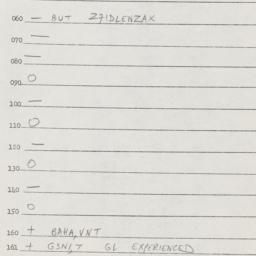 060 — BUT Z71DLENZAX
070 —
080 —
090 O
100 —
110 O
120 —
130 O
140 —
150 O
160 + BAHA, VNT
161 + GSN/,T GL EXPERIENCED